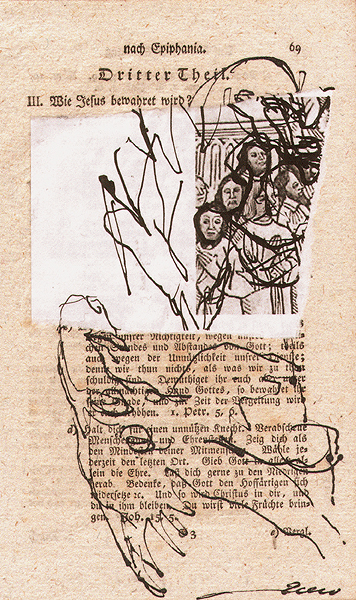 nach Epiphania. 69
Dritter Theil.
III. Wie Jesus bewahret wird?
unsrer Nichtigkeit, wegen
und Abstandes von Gott; theils
auch wegen der Unnützlichkeit unsrer
denn wir thun nichts, als was wir zu thun
schuldig sind. Demüthiget ihr euch
Hand Gottes, so bewahret ihr
Gnade, und zur Zeit der Vergeltung wird
1. Petr. 5, 6.
Halt dich für einen unnützen Knecht. Verabscheue
und Zeig dich als
den Mindesten deiner Mitmenschen. Wähle je-
derzeit den letzten Ort. Gieb Gott in allem al-
lein die Ehre. Laß dich gerne zu den Niedrigen
herab. Bedenke, daß Gott den Hoffärtigen sich
widersetze ꝛc. Und so wird Christus in dir, und
du in ihm bleiben. Du wirst viele Früchte brin-
gen. Joh. 15, 5.
3